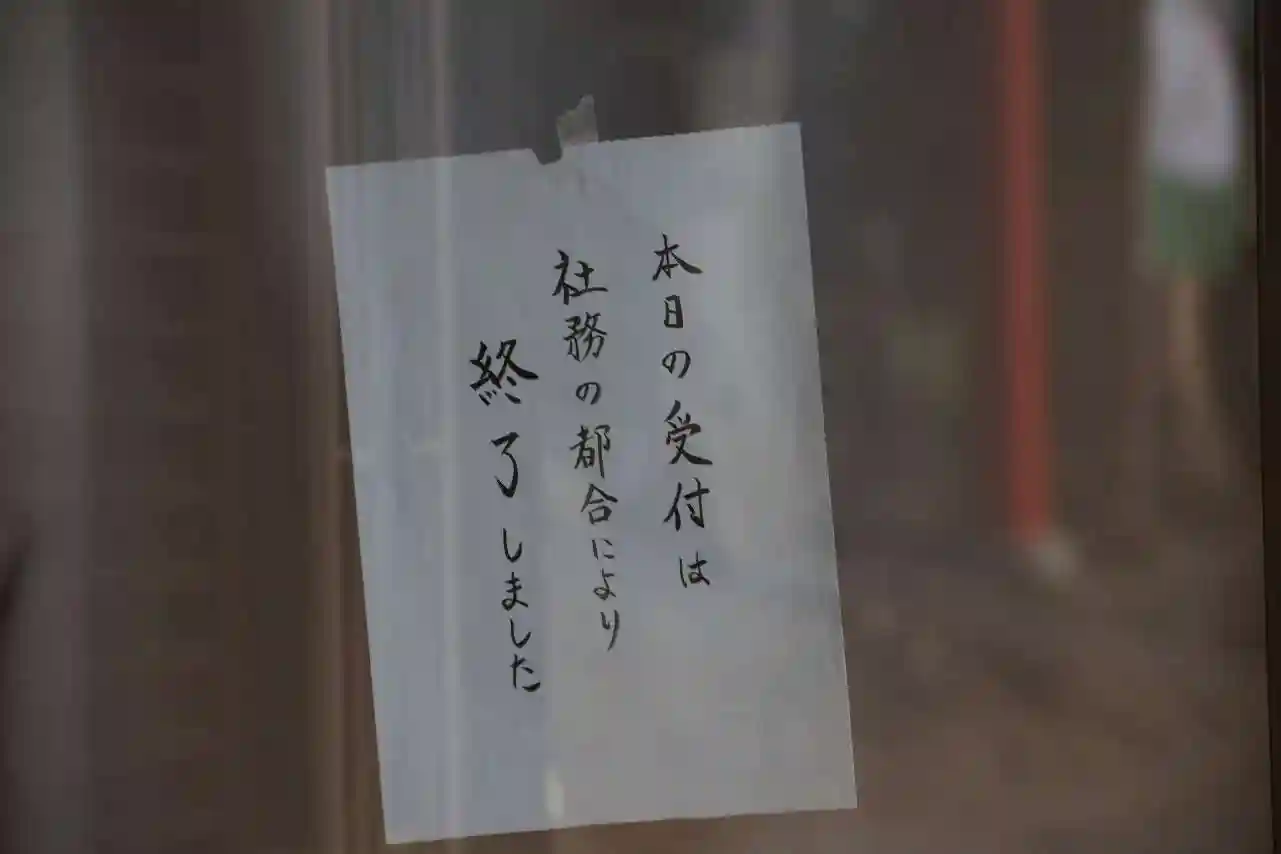 本日の受付は
社務の都合により
終了しました